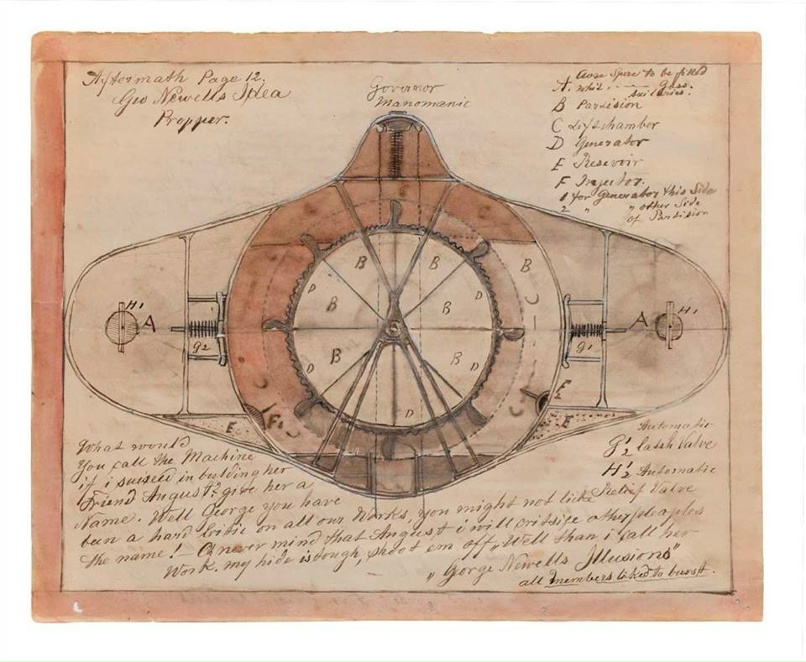 Aftermath Page 12.
Geo Newells Idea
Propper.
Governor
Manomanic
A. Space to be filled
whit Gass.
B Partision
C Liftchamber
D Generator
E Resevoir
F Injector.
1 for Generator this Side
2 " " other Side
of Partision
H1
A
g2
B
B
B
B
B
B
D
D
D
D
D
A
H1
g1
C
C
C
C
E
F
F
E
E
Automatic
G 1/2 Latsh Valve
H 1/2 Automatic
Relief Valve
What would
You call the Machine
if i sucseed in building her
Friend August? give her a
Name. Well George you have
been a hard Critic on all our Works, you might not like
the name! – O never mind that August i will critsise other pleaples
Work, my hide is tough, shoot em off „Well than i call her
„Gorge Newells Illusions"
all members liked to burst.